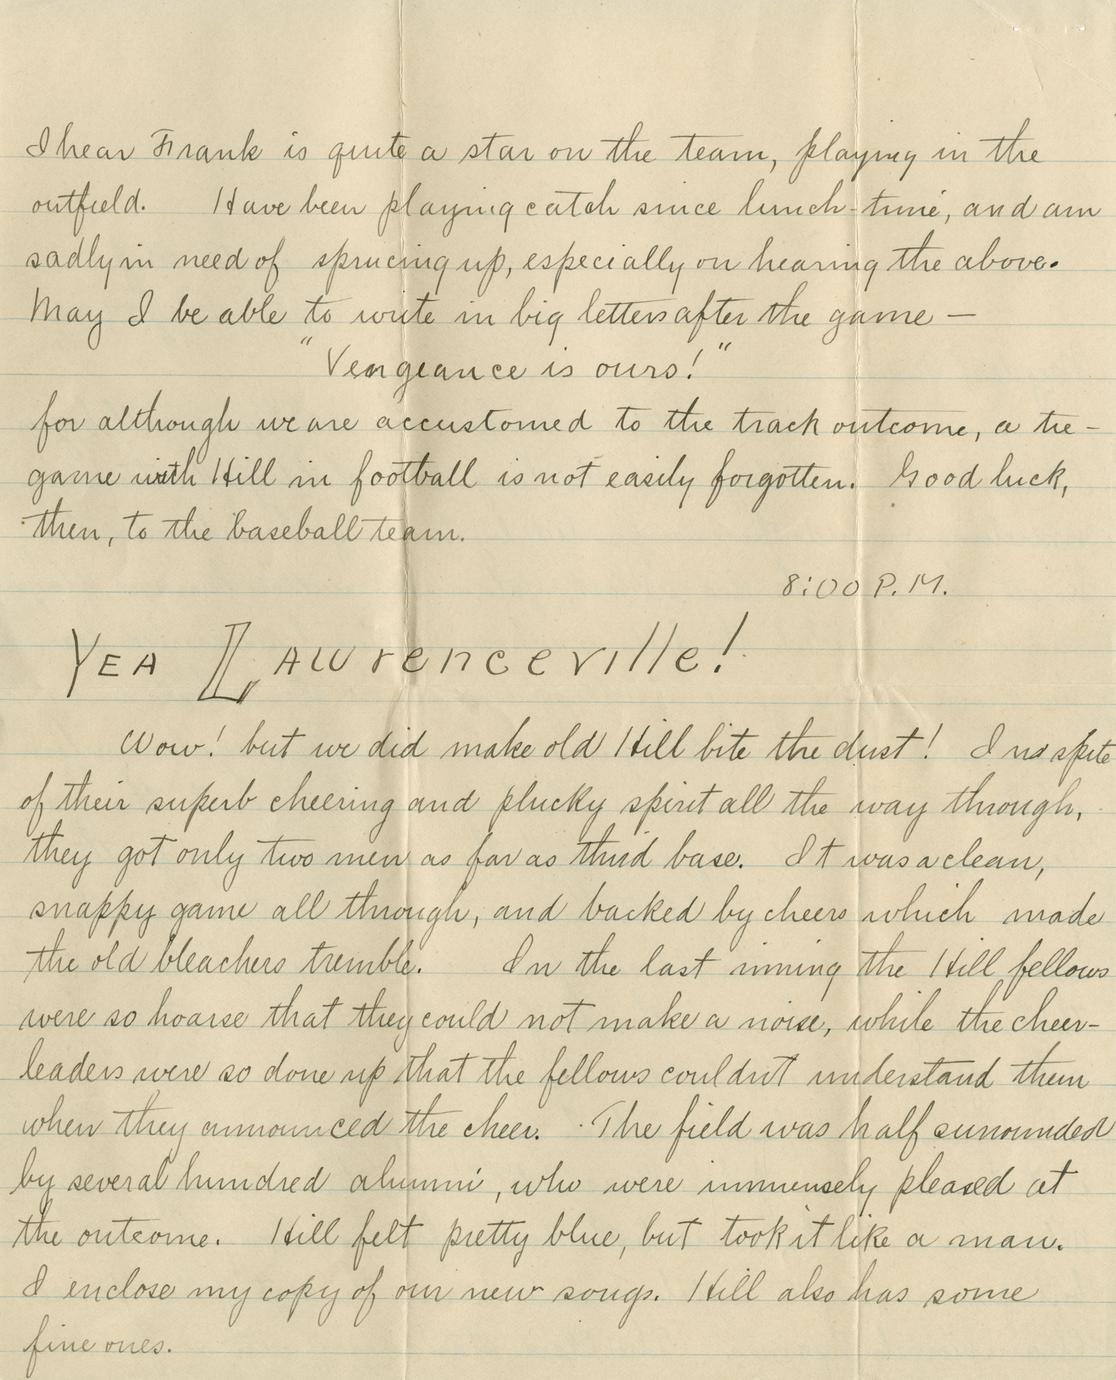 I hear Frank is quite a star on the team, playing in the
outfield. Have been playing catch since lunch-time, and am
sadly in need of sprucing up, especially on hearing the above.
May I be able to write in big letters after the game —
"Vengeance is ours!"
for although we are accustomed to the track outcome, a tie-
game with Hill in football is not easily forgotten. Good luck,
then, to the baseball team.
8:00 P.M.
YEA LAWrenceville!
Wow! but we did make old Hill bite the dust! In spite
of their superb cheering and plucky spirit all the way through,
they got only two men as far as third base. It was a clean,
snappy game all through, and backed by cheers which made
the old bleachers tremble. In the last inning the Hill fellows
were so hoarse that they could not make a noise, while the cheer-
leaders were so done up that the fellows couldn't understand them
when they announced the cheer. The field was half surrounded
by several hundred alumni, who were immensely pleased at
the outcome. Hill felt pretty blue, but took it like a man.
I enclose my copy of our new songs. Hill also has some
fine ones.